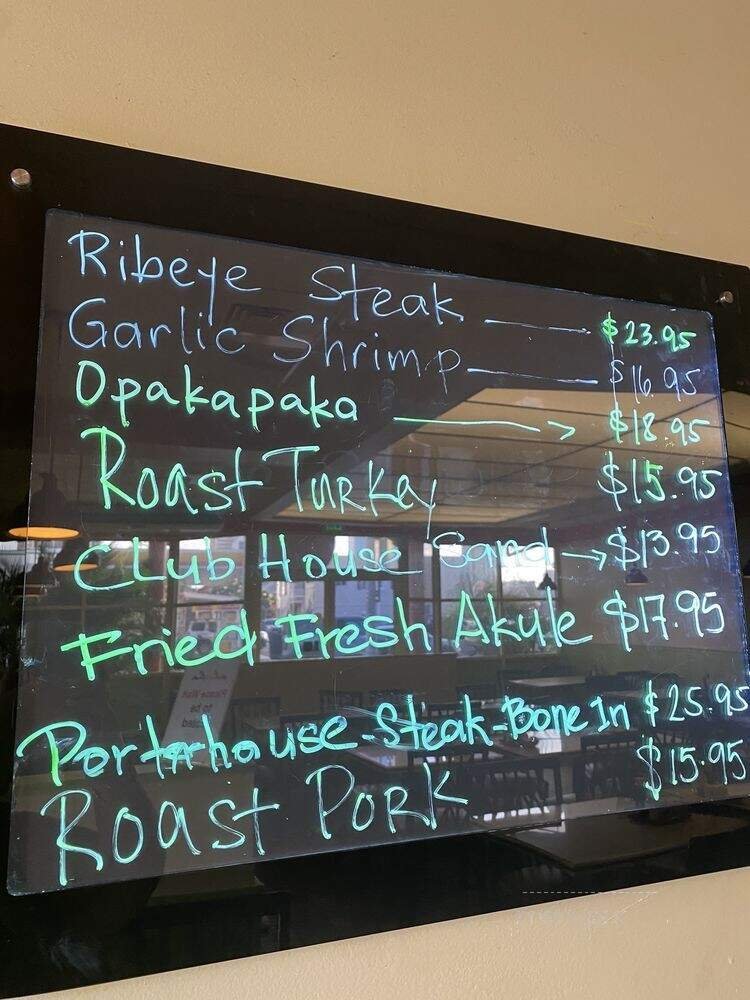 Ribeye Steak $23.95
Garlic Shrimp $16.95
Opakapaka $18.95
Roast Turkey $15.95
Club House Sand $13.95
Fried Fresh Akule $17.95
Porterhouse-Steak-Bone In $25.95
Roast Pork $15.95
Please Wait
to be